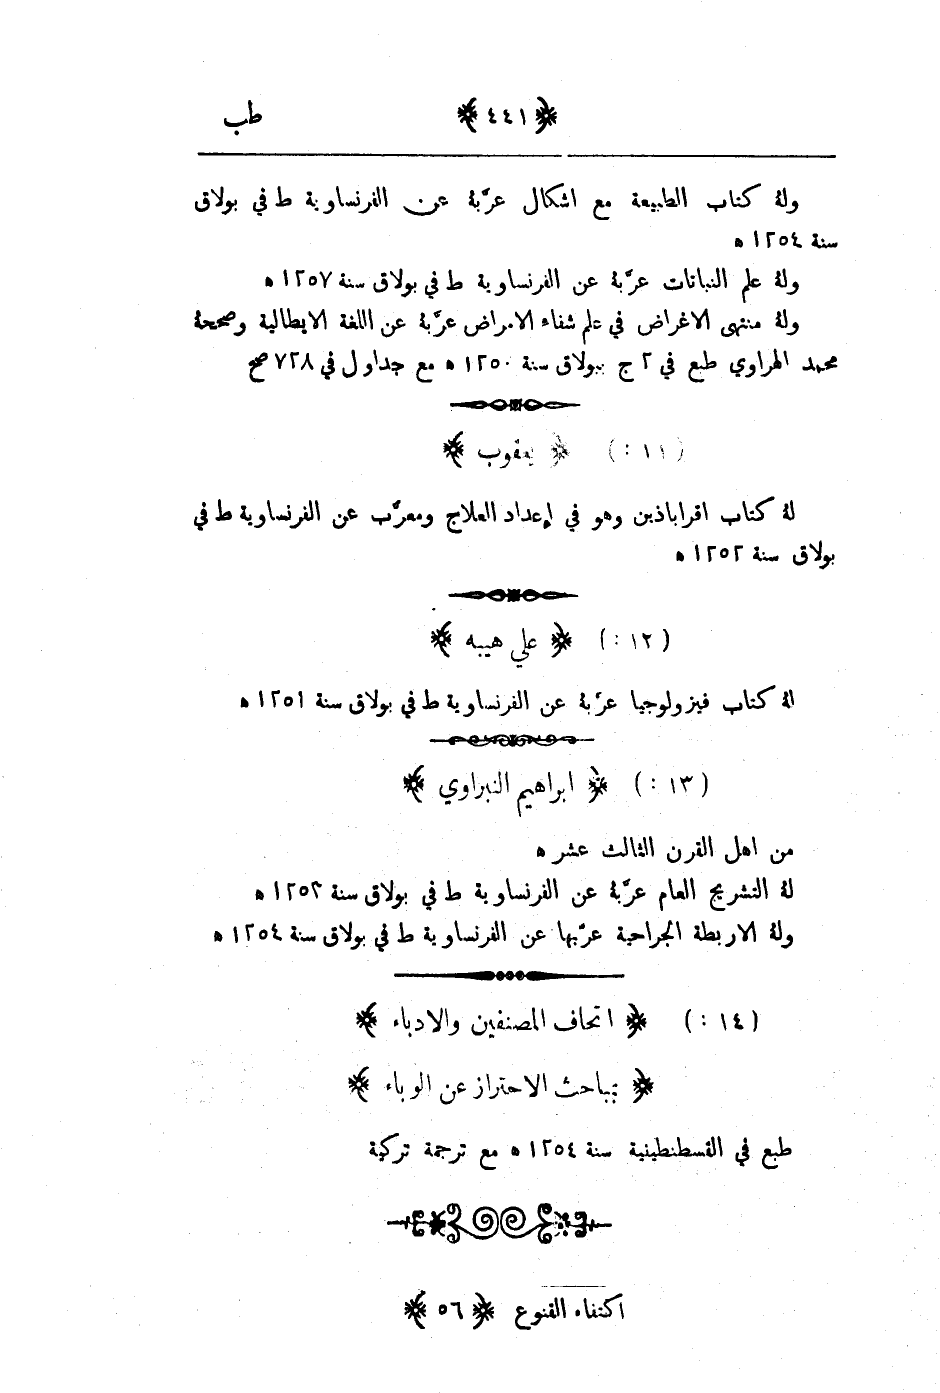 ﴿ ٤٤١ ﴾ طب
ولهُ كتاب الطبيعة مع اشكال عرَّبهُ عن الفرنساوية ط في بولاق
سنة ١٢٥٤ ه
ولهُ علم النباتات عرَّبهُ عن الفرنساوية ط في بولاق سنة ١٢٥٧ ه
ولهُ منتهى الاغراض في علم شفاء الامراض عرَّبهُ عن اللغة الايطالية وصححهُ
محمد الهراوي طبع في ٢ ج ببولاق سنة ١٢٥٠ ه مع جداول في ٧٢٨ صح
(١١ :) ﴿ يعقوب ﴾
لهُ كتاب اقراباذين وهو في إعداد العلاج ومعرَّب عن الفرنساوية ط في
بولاق سنة ١٢٥٢ ه
(١٢ :) ﴿ علي هيبه ﴾
لهُ كتاب فيزولوجيا عرَّبهُ عن الفرنساوية ط في بولاق سنة ١٢٥١ ه
(١٣ :) ﴿ ابراهيم النبراوي ﴾
من اهل القرن الثالث عشر ه
لهُ التشريح العام عرَّبهُ عن الفرنساوية ط في بولاق سنة ١٢٥٣ ه
ولهُ الاربطة الجراحية عرَّبها عن الفرنساوية ط في بولاق سنة ١٢٥٤ ه
(١٤ :) ﴿ اتحاف المصنفين والادباء ﴾
﴿ بمباحث الاحتراز عن الوباء ﴾
طبع في القسطنطينية سنة ١٢٥٤ ه مع ترجمة تركية
اكتفاء القنوع ﴿ ٥٦ ﴾